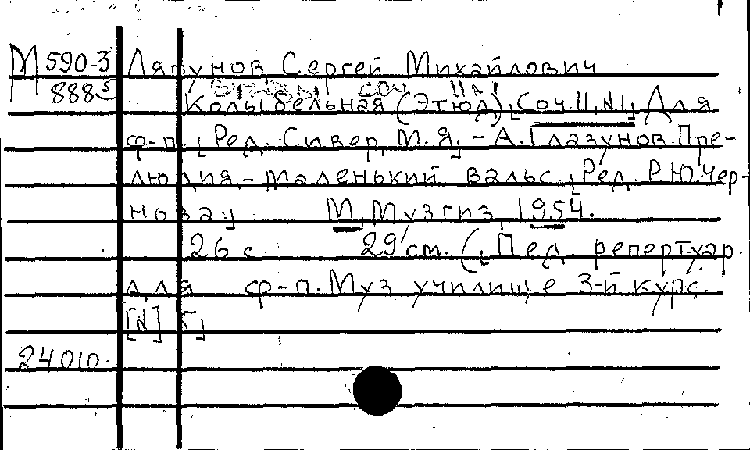 М 590-3 Ляпунов Сергей Михайлович
888⁵ Соч. 11, №1
Колыбельная (Этюд), [Соч 11, №1] Для
ф-п. [Ред. Сивер М.Я] - А. Глазунов Пре-
людия. - Маленький вальс. [Ред. Р.Ю. Чер-
нова у] М, Музгиз, 1954.
26 с. 29 см. ([Пед. репертуар
для ф-п. Муз училище 3-й курс.
24010.